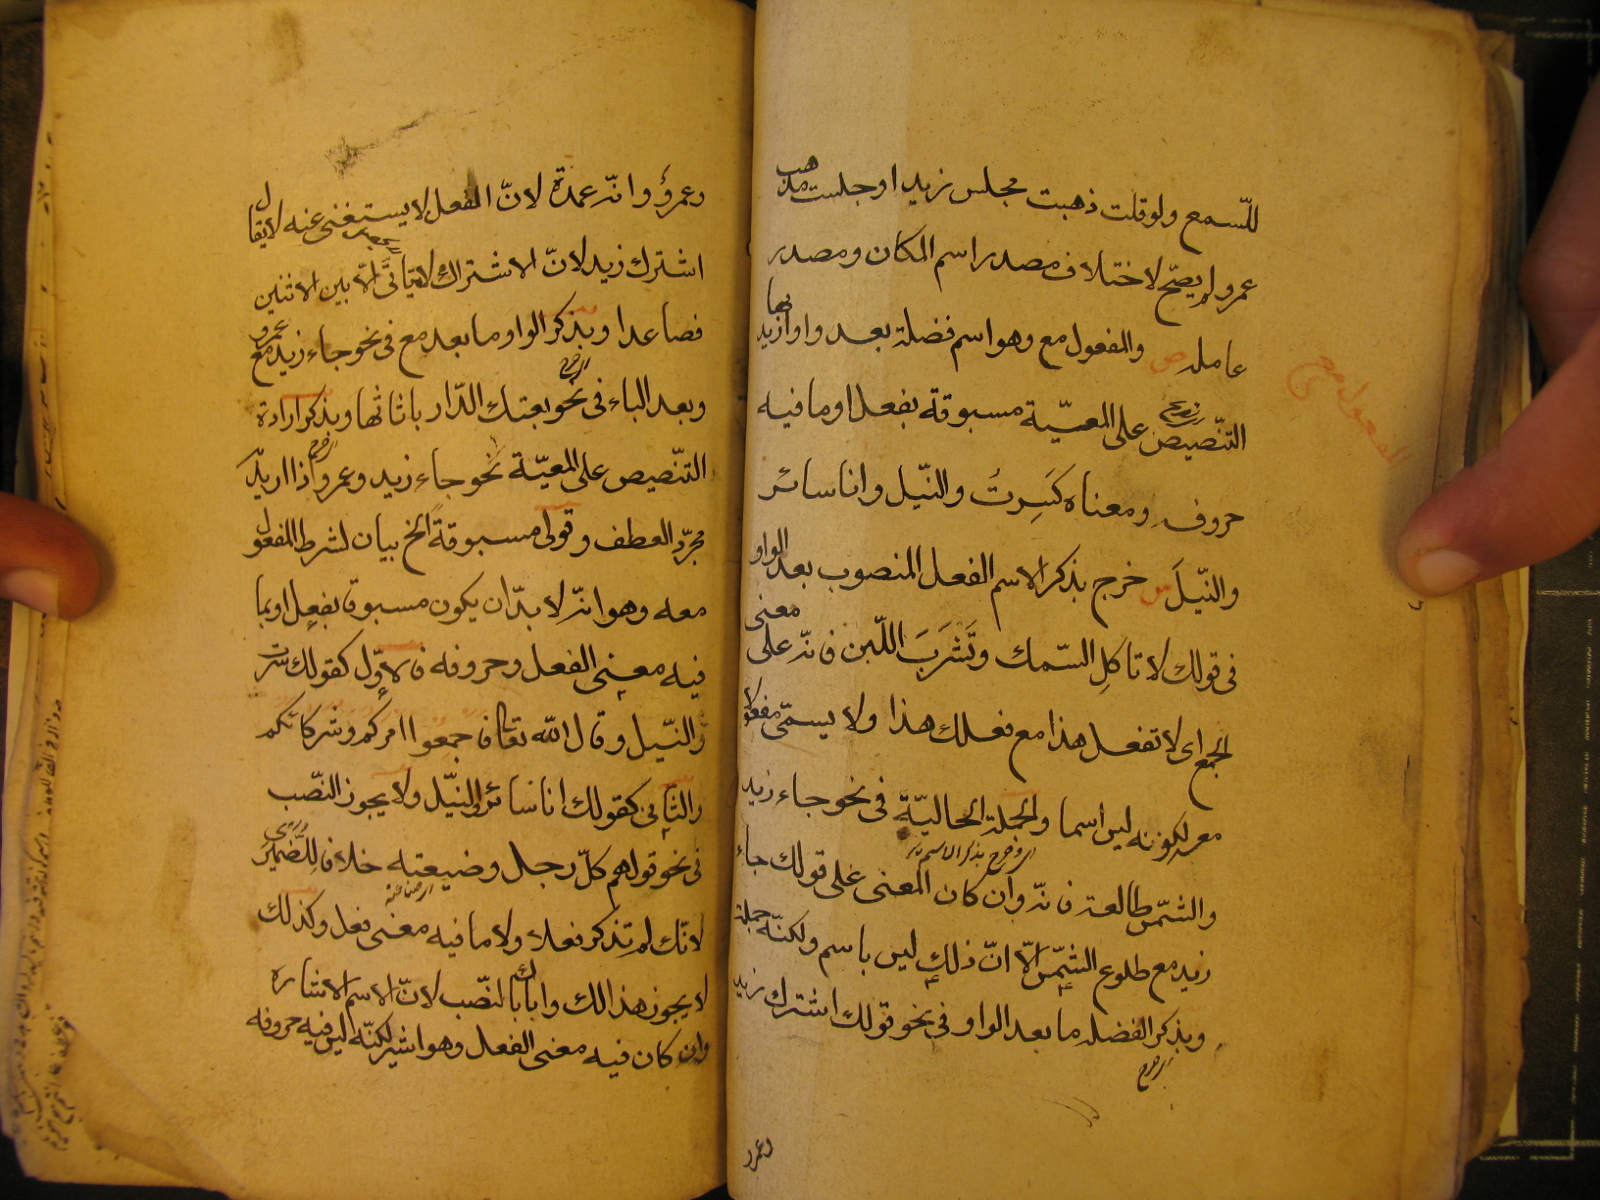 للسّمع ولو قلت ذهبت مجلس زيد او جلست مذهب
عمرو لم يصحّ لاختلاف مصدر اسم المكان ومصدر
عامله ص والمفعول مع وهو اسم فضلة بعد واو ازيد بها
التنّصيص على المعيّة مسبوقة بفعل او ما فيه
حروفه ومعناه كَسِرتُ والنّيل وانا سائر
والنّيلَ ش خرج بذكر الاسم الفعل المنصوب بعد الواو
فى قولك لا تاكلِ السّمك وتَشَرَبَ اللّبن فانّه على معنى
الجمع اى لا تفعل هذا مع فعلك هذا ولا يسمّى مفعولا
معه لكونه ليس اسما والجملة الحاليّة فى نحو جاء زيد
والشّمس طالعة فانّه وان كان المعنى على قولك جاء
زيد مع طلوع الشّمس الّا انّ ذلك ليس باسم ولكنّه جملة
وبذكر الفضله ما بعد الواو فى نحو قولك اشترك زيد
وعمرو
المفعول مع
وعمروٌ وانّه عمدة لانّ الفعل لا يستغنى عنه لا يقال
اشترك زيد لانّ الاشتراك لا يتأتّى الّا بين الاثنين
فصاعدا وبذكر الواو ما بعد مع فى نحو جاء زيد مع عمرو
وبعد الباء فى نحو بعتك الدّار باثاثها وبذكر ارادة
التنّصيص على المعيّة نحو جاء زيد وعمرو اذا اريد
مجرّد العطف وقولى مسبوقة الخ بيان لشرط المفعول
معه وهو انّه لا بدّ ان يكون مسبوقا بفعل او بما
فيه معنى الفعل وحروفه فالاوّل كقولك سرت
والنّيل وقال اللّه تعالى فاجمعوا امركم وشركائكم
والثّانى كقولك انا سائر والنيّل ولا يجوز النّصب
فى نحو قولهم كلّ رجل وضيعته خلافا للضّميرى
لانّك لم تذكر فعلا ولا ما فيه معنى فعل وكذلك
لا يجوز هذا لك واباك بالنّصب لانّ الاسم الاشاره
وان كان فيه معنى الفعل وهو اشير لكنّه ليس فيه حروفه